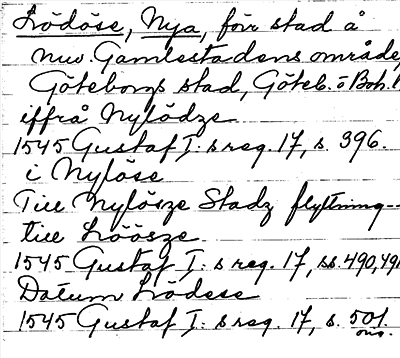 Lödöse, Nya, förr stad å
nuv. Gamlestadens område,
Göteborgs stad, Göteb. o Boh. l
iffrå Nylödze
1545 Gustaf I:s reg. 17, s. 396.
i Nylöse
Till Nylösze Stadz flyttning--
till Löösze
1545 Gustaf I:s reg. 17, ss. 490, 491
Datum Lödese
1545 Gustaf I:s reg. 17, s. 501.